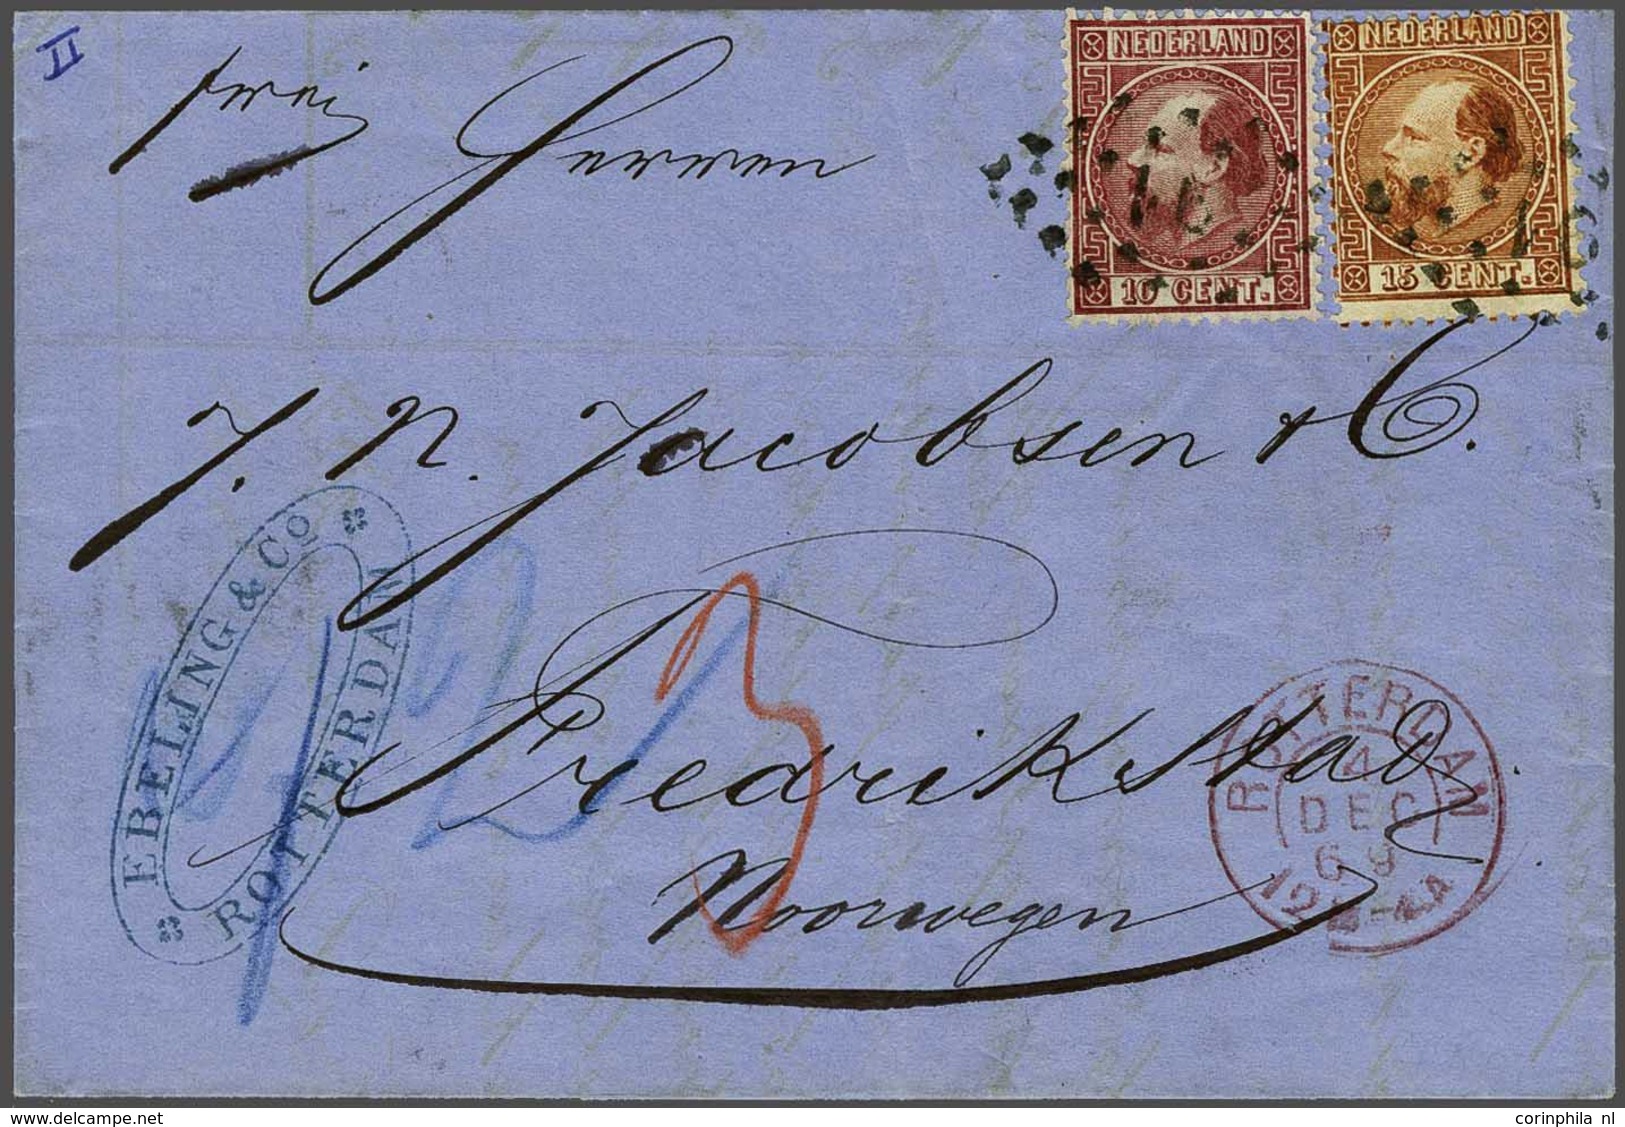 II
frei Herren
NEDERLAND
10 CENT.
NEDERLAND
15 CENT.
J. N. Jacobsen & C.
Fredrikstad
Noorwegen
3
EBELING & Cº
ROTTERDAM
ROTTERDAM
4
DEC
69
corinphila nl